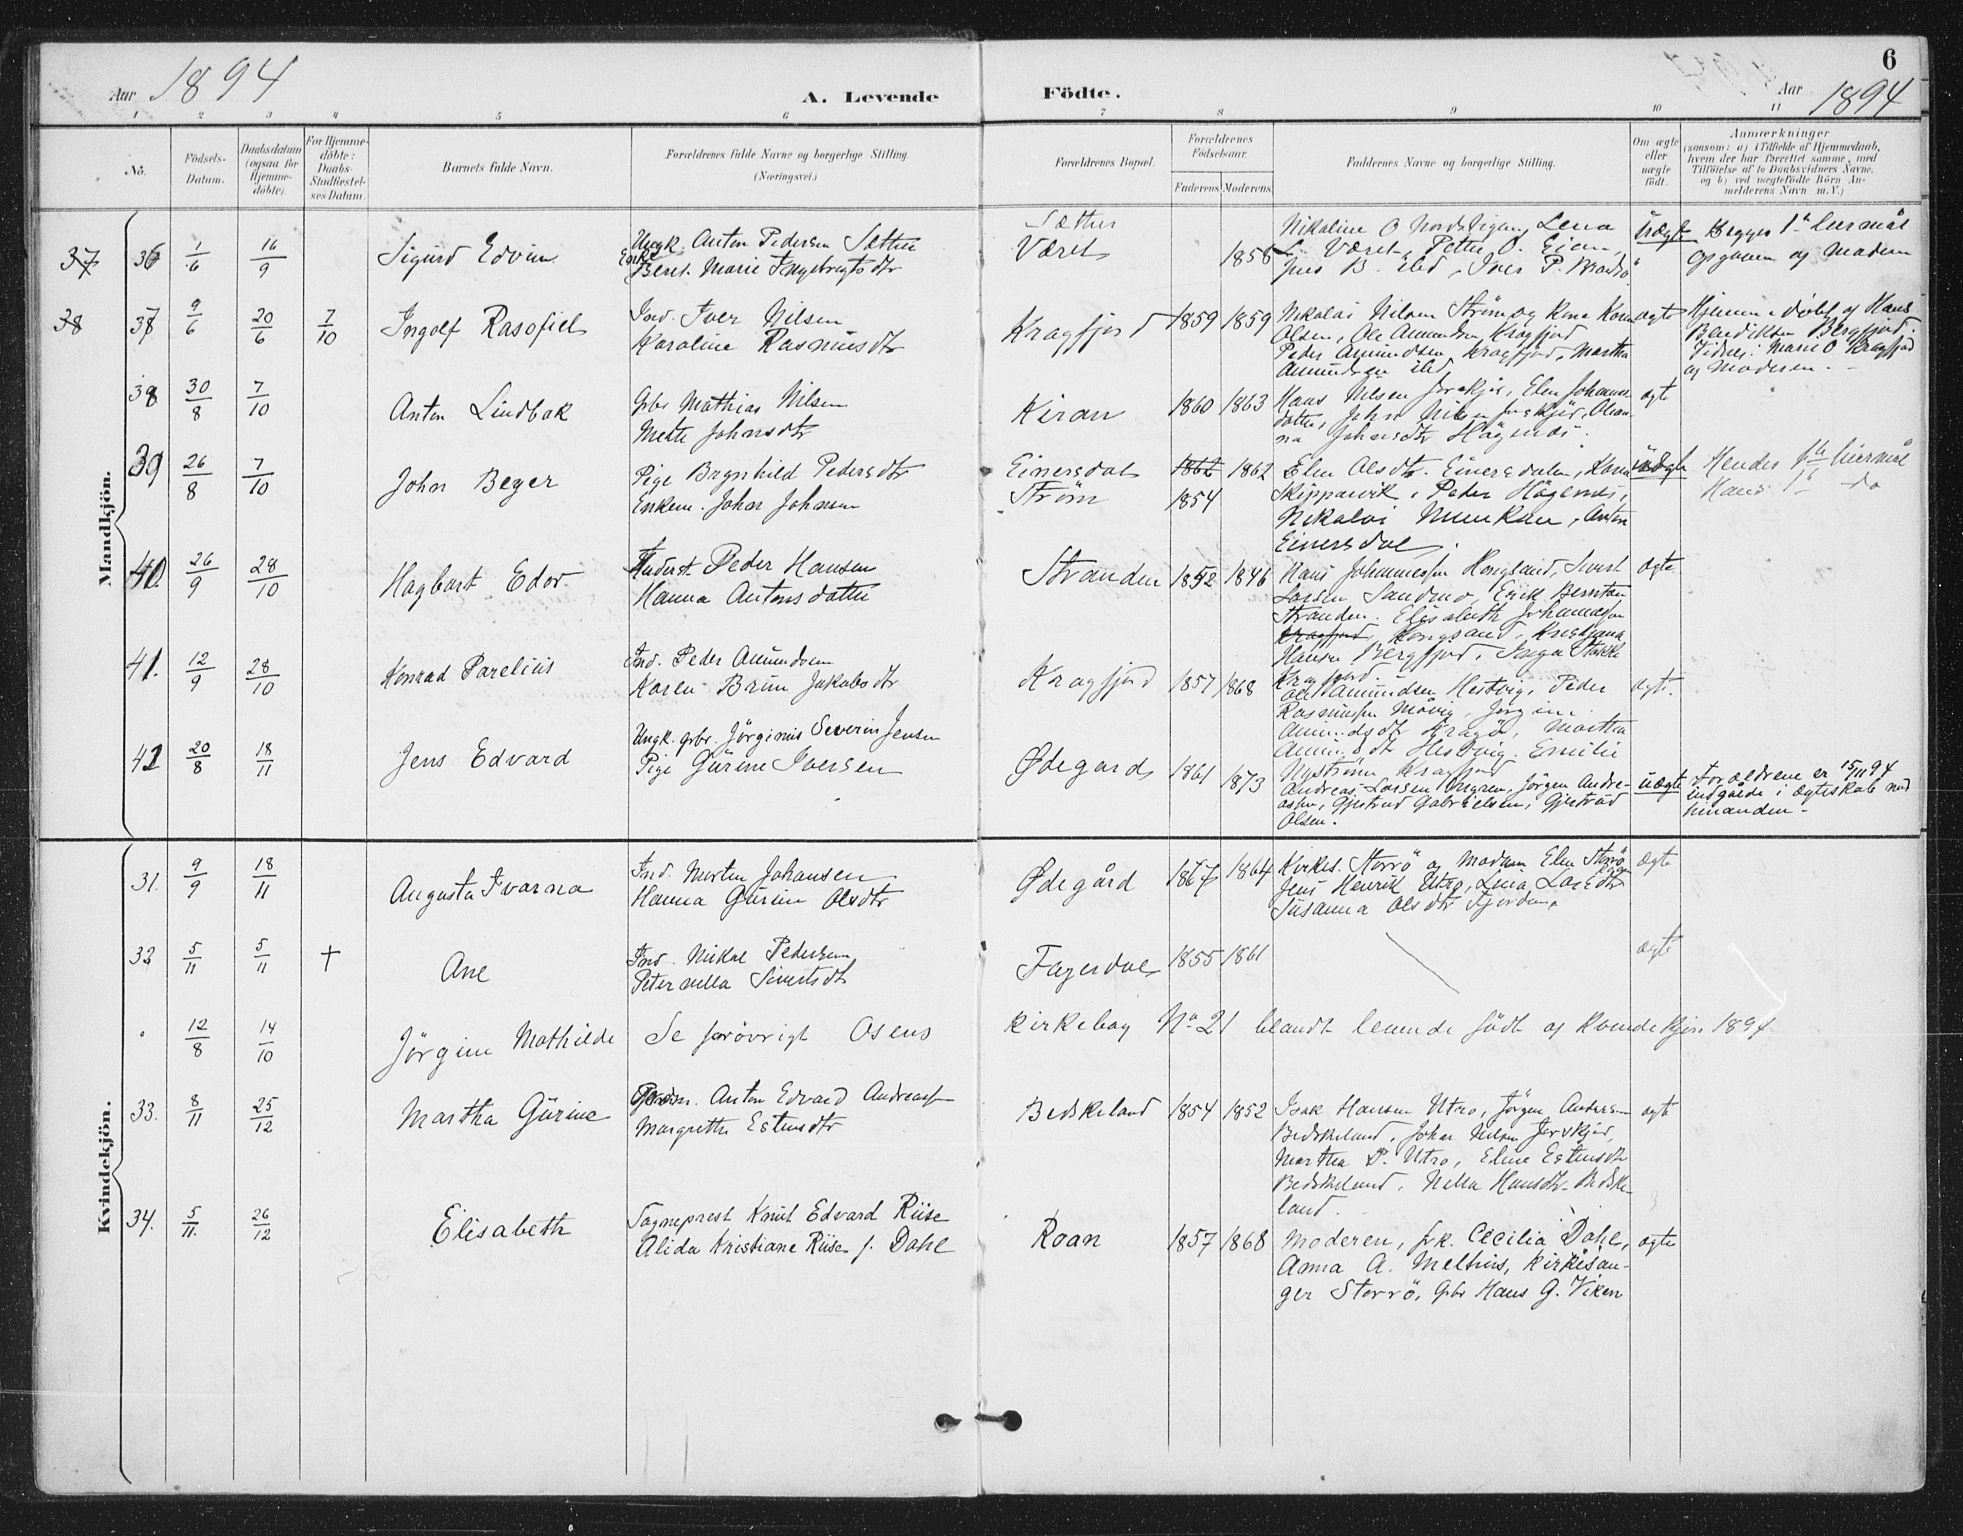 6
Aar 1894
A. Levende Födte.
Aar 1894
1 2 3 4 5 6 7 8 9 10 11
No.
Födsels-
Datum.
Daabsdatum
(ogsaa for
Hjemme-
döbte).
For Hjemme-
döbte:
Daabs-
Stadfæstel-
ses Datum.
Barnets fulde Navn.
Forældrenes fulde Navne og borgerlige Stilling
(Næringsvei.)
Forældrenes Bopæl.
Forældrenes
Födselsaar.
Faderens. Moderens.
Faddernes Navne og borgerlige Stilling.
Om ægte
eller
uægte
født.
Anmærkninger
(saasom: a) i Tilfælde af Hjemmedaab,
hvem der har forrettet samme, med
Tilföielse af to Daabsvidners Navne,
og b) ved uægtefödte Börn An-
melderens Navn m.V.)
Mandkjön.
37 36 1/6 16/9
Sigurd Edvin
Ungk. Anton Pedersen Sætter
Enke Beret Marie Ingebrigtsdtr
Sætter
Været
1856
Nikoline O Nordskjgen, Lena
Været, Petter O.
Jens B. ibd, Iver P.
uægte
Begges 1ste leiermål
opgiven af moderen
38 37 9/6 20/6 7/10
Ingolf Rasofiel
Ind. Iver Nilsen
Karoline Rasmusdtr
Kragfjord
1859 1859
Nikolai Nilsen Ström og Kone
Olsen, Ole Amundsen Kragfjord
Peder Amundsen Kragfjord, Martha
Amundsen ibd
ægte
Hjemmedöbt af Hans
Bendiksen Bergfjord.
Vidner: Marie O Kragfjord
og Moderen.
38 30/8 7/10
Anton Lindbak
Gbr Mathias Nilsen
Mette Johnsdtr
Kiran
1860 1863
Hans Nilsen Jørskjør, Elen Johannes-
datter, John Nilsen Jørskjör, Olean-
na Johnsdtr Hågenæs.
ægte
39 26/8 7/10
Johan Beyer
Pige Brynhild Pedersdtr
Enkem. Johan Johnsen
Einersdal
Strøm
1862 1862
1854
Elen Olsdtr. Einersdalen,
Skipparvik, Peder Hågenæs,
Nikolai Munkan, Anton
Einersdal.
uægte
Hendes leiermål
Hans 1ste do
40. 26/9 28/10
Hagbart Edor
Peder Hansen
Hanna Antonsdatter
Stranden
1852 1846
Hans Johannessen Hongsand, Sivert
Larsen Sandmo, Erik Berntsen
Stranden. Elisabeth Johannessen
Kragfjord, Hongsand, Kristiana
Hansen Bergfjord, Inga
Kragfjord.
ægte
41. 12/9 28/10
Konrad Parelius
Ind. Peder Amundsen
Karen Brun Jakobsdtr
Kragfjord
1857 1868
Ole Amundsen Hestvig, Peder
Rasmussen Måvig, Jørgine
Amundsdtr Kragö, Martha
Amundsdtr Hestvig. Emilie
Nyström Kragfjord
ægte.
42 20/8 18/11
Jens Edvard
Ungk. gbr. Jörginus Severin Jensen
Pige Gurine Iversen
Ødegard
1861 1873
Andreas Larsen, Jörgen Andre-
assen, Gjertrud Gabrielsen, Gjertrud
Olsen.
uægte
Forældrene er 15/11 94
indgåede i ægteskab med
hinanden.
Kvindekjön.
31. 9/9 18/11
Augusta Ivarna
Ind. Morten Johansen
Hanna Gurine Olsdtr
Ødegård
1867 1864
Kirkes. Storrö og Madam Elen Storrö
Jens Henrik Utro, Lina Larsdtr
Susanna Olsdtr Fjorden.
ægte
32 5/11 5/11 †
Ane
Ind. Mikal Pedersen
Peternella Sivertsdtr
Fagerdal
1855 1861
ægte
12/8 14/10
Jörgine Mathilde
Se forövrigt Osens kirkebog No 21 blandt levende född af kvindekjön 1894
33. 8/11 25/12
Martha Gurine
Anton Edvard Andreassen
Margrethe Estensdtr
Beskeland
1854 1852
Isak Hansen Utro, Jörgen Andersen
Beskeland, Johan Nilsen Jørskjør,
Martha P. Utro, Eline Estensdtr
Beskeland, Nella Hansdtr Beske-
land.
ægte
34. 5/11. 26/12
Elisabeth
Sogneprest Knut Edvard Riise
Alida Kristiane Riise f. Dahl
Roan
1857 1868
Moderen, frk. Cecilia Dahl,
Anna A. Melhus, Kirkesan-
ger Storrö, Gbr Hans G. Viken
ægte